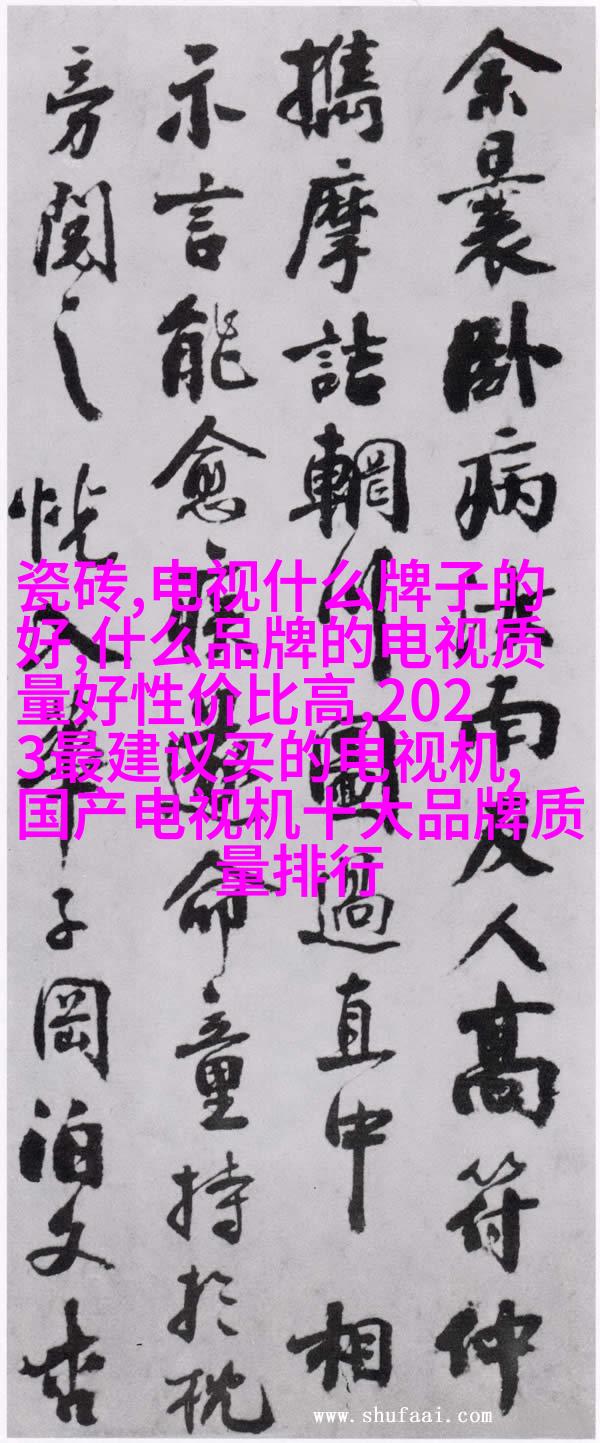 余曩卧病汝南友人高符仲
攜摩詰輞川圖過直中相
示言能愈疾遂命童持於枕
旁閱之恍入華子岡泊文杏
瓷砖,电视什么牌子的
好,什么品牌的电视质
量好性价比高,202
3最建议买的电视机,
国产电视机十大品牌质
量排行
www.shufaai.com